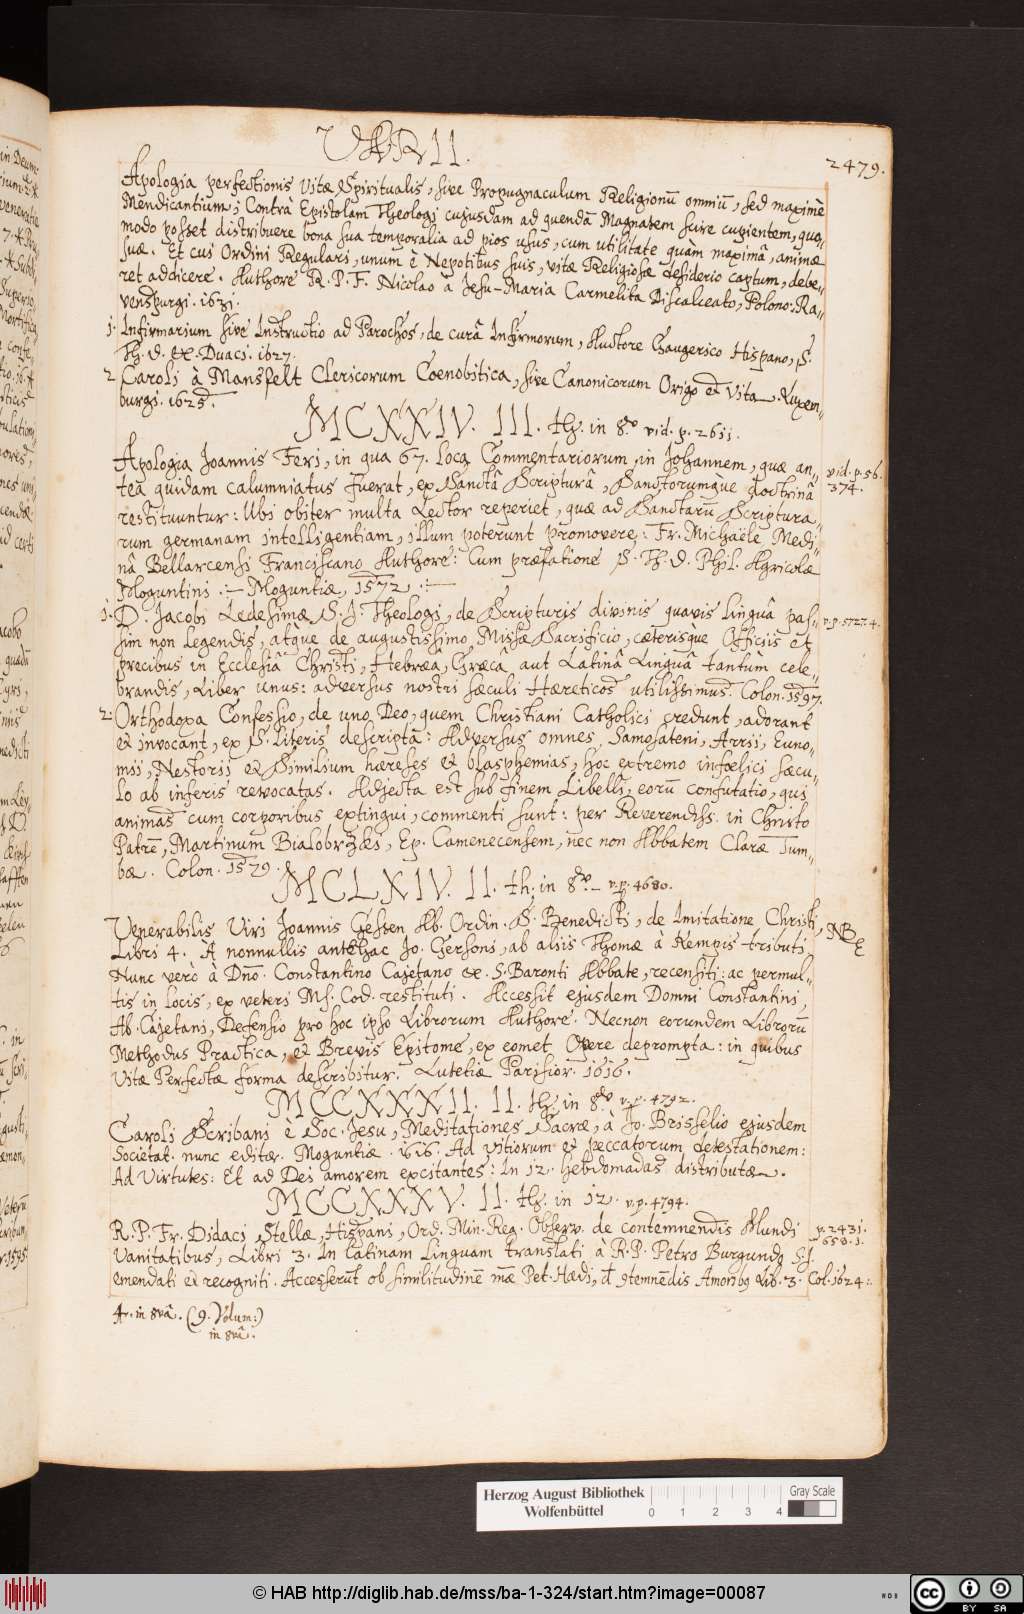 VARII.
2479.
Apologia perfectionis Vitæ Spiritualis, sive Propugnaculum Religionū omniū, sed maximè
Mendicantium; Contrà Epistolam Theologi cujusdam ad quendā Magnatem scire cupientem, quo-
modo posset distribuere bona sua temporalia ad pios usus, cum utilitate quàm maximâ, animæ
suæ. Et cui Ordini Regulari, unum è Nepotibus suis, vitæ Religiosæ desiderio captum, debe-
ret addicere. Authore R. P. F. Nicolao à Jesu-Maria Carmelita Discalceato, Polono: Ra-
venspurgi. 1631.
1. Infirmarium sive Instructio ad Parochos, de curâ Infirmorum, Auctore Gaugerico Hispano, S.
Th. D. &c. Duaci. 1627.
2 Caroli à Mansfelt Clericorum Coenobitica, sive Canonicorum Origo et Vita. Luxem-
burgi. 1625.
MCXXIV. III. th. in 8.º vid. p. 2611.
Apologia Joannis Feri, in qua 67. loca Commentariorum in Johannem, quæ an-
vid. p. 56.
374.
tea quidam calumniatus fuerat, ex Sanctâ Scripturâ, Sanctorumque doctrinâ
restituuntur: Ubi obiter multa Lector reperiet, quæ ad Sanctarū Scriptura-
rum germanam intelligentiam, illum poterunt promovere: Fr. Michaële Medi-
nâ Bellarcensi Franciscano Authore: Cum præfatione S. Th. D. Phil. Agricolæ
Moguntini. Moguntiæ, 1572.
1. D. Jacobi Ledesimæ S. J. Theologi, de Scripturis divinis quavis linguâ pas-
v. p. 5727. 4.
sim non legendis, atque de augustissimo Missæ Sacrificio, cæterisque Officiis et
precibus in Ecclesiâ Christi, Hebræâ, Græcâ aut Latinâ Linguâ tantùm cele-
brandis, Liber unus: adversus nostri sæculi Hæreticos utilissimus. Colon. 1597.
2. Orthodoxa Confessio, de uno Deo, quem Christiani Catholici credunt, adorant
et invocant, ex S. Literis descripta: Adversus omnes, Samosateni, Arrii, Euno-
mii, Nestorii et Similium hæreses et blasphemias, hoc extremo infœlici sæcu-
lo ab inferis revocatas. Adjecta est sub finem Libelli, eorū confutatio, qui
animas cum corporibus extingui, commenti sunt: per Reverendiss. in Christo
Patrē, Martinum Bialobrzkes, Ep. Camenecensem, nec non Abbatem Claræ Tum-
bæ. Colon. 1579.
MCLXIV. II. th. in 8.vo v. p. 4680.
Venerabilis Viri Joannis Gessen Ab. Ordin. S. Benedicti, de Imitatione Christi,
NB
Libri 4. A nonnullis antehac Jo. Gersoni, ab aliis Thomæ à Kempis tributi
Nunc verò à Dño. Constantino Cajetano ex S. Baronti Abbate, recensiti: ac permul-
tis in locis, ex veteri Ms. Cod. restituti. Accessit ejusdem Domni Constantini,
Ab. Cajetani, Defensio pro hoc ipso Librorum Authore. Necnon eorundem Librorū
Methodus Practica, et Brevis Epitome, ex eomet Opere deprompta: in quibus
Vitæ Perfectæ forma describitur. Lutetiæ Parisior. 1616.
MCCXXXII. II. th. in 8.vo v. p. 4792.
Caroli Scribani è Soc. Jesu, Meditationes Sacræ, à Jo. Brisselio ejusdem
Societat. nunc editæ. Moguntiæ. 1616. Ad vitiorum et peccatorum detestationem:
Ad Virtutes: Et ad Dei amorem excitantes: In 12. hebdomadas distributæ.
MCCXXXV. II. th. in 12. v. p. 4794.
R. P. Fr. Didaci Stellæ, Hispani, Ord. Min. Reg. Observ. de contemnendis Mundi
p. 2431.
650. 1.
Vanitatibus, Libri 3. In latinam linguam translati à R. P. Petro Burgundo S. J.
emendati et recogniti. Accesserūt ob similitudinē māe Pet. Hædi, d 9temnēdis Amorib9 Lib. 3. Col. 1624:.
4. in 8vâ. (9. Volum:)
in 8vâ.
Herzog August Bibliothek
Wolfenbüttel
0 1 2 3 4
Gray Scale
© HAB http://diglib.hab.de/mss/ba-1-324/start.htm?image=00087
cc BY SA